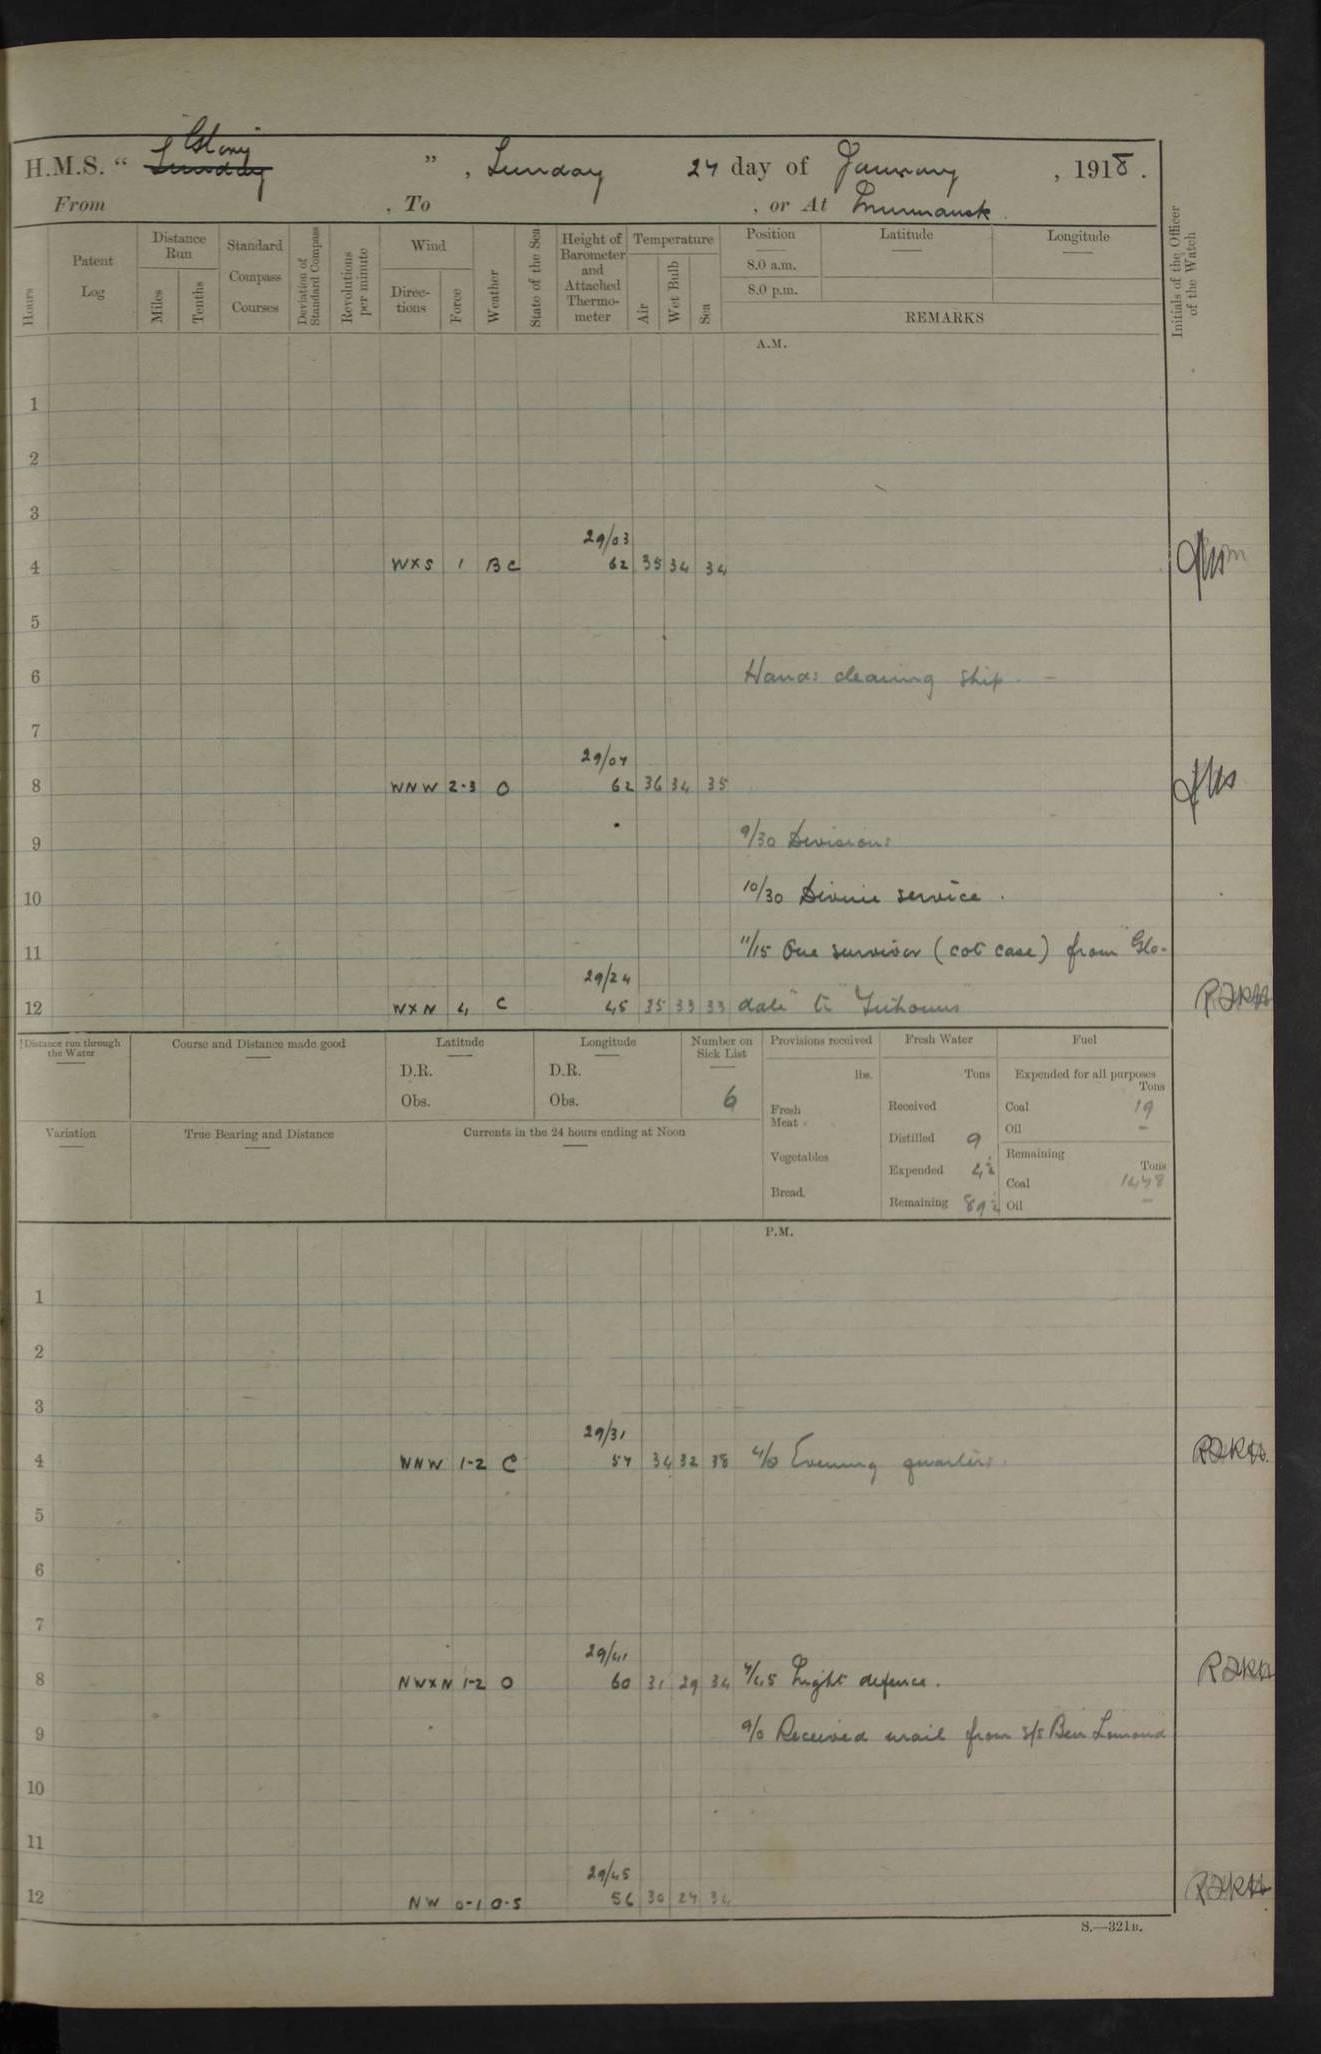 Glory
H.M.S. “ Sunday ” , Sunday 27 day of January , 1918 .
From , To , or At Murmansk .
Hours
Patent Log
Distance Run
Miles
Tenths
Standard Compass Courses
Deviation of Standard Compass
Revolutions per minute
Wind
Directions
Force
Weather
State of the Sea
Height of Barometer and Attached Thermometer
Temperature
Air
Wet Bulb
Sea
Position
8.0 a.m.
8.0 p.m.
Latitude
Longitude
REMARKS
Initials of the Officer of the Watch
A.M.
1
2
3
29/03
4 WXS 1 BC 62 35 34 34
5
6 Hands cleaning ship
7
29/07
8 WNW 2-3 O 62 36 34 35
9 9/30 Divisions
10 10/30 Divine service .
11 11/15 One survivor (cot case) from "Glo-
29/24
12 WXN 4 C 45 35 33 33 date" to
Distance run through the Water
Course and Distance made good
Latitude
D.R.
Obs.
Longitude
D.R.
Obs.
Number on Sick List
6
Provisions received
lbs.
Fresh Meat
Vegetables
Bread
Fresh Water
Tons
Received
Distilled 9
Expended 4½
Remaining 89½
Fuel
Expended for all purposes
Tons
Coal 19
Oil –
Remaining
Tons
Coal 1478
Oil –
Variation
True Bearing and Distance
Currents in the 24 hours ending at Noon
P.M.
1
2
3
29/31
4 WNW 1-2 C 57 34 32 38 4/0 Evening quarters
5
6
7
29/41
8 NWXN 1-2 O 60 31 29 34 7/45 Night defence .
9 9/0 Received mail from S/S Ben Lomond
10
11
29/45
12 NW 0-1 O-S 56 30 27 34
S.—321B.